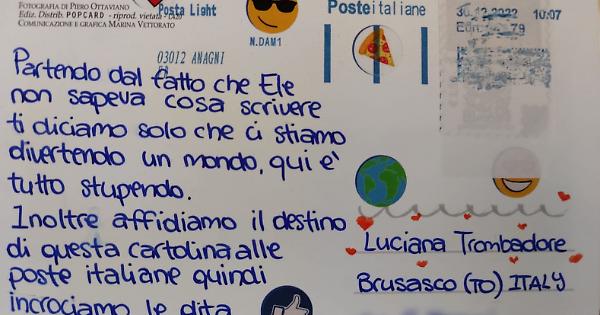 FOTOGRAFIA DI PIERO OTTAVIANO
Ediz. Distrib. POPCARD - riprod. vietata -
COMUNICAZIONE E GRAFICA MARINA VETTORATO
Posta Light
N.DAM1
03012 ANAGNI
Posteitaliane
30.12.2022 10:07
79
Partendo dal fatto che Ele
non sapeva cosa scrivere
ti diciamo solo che ci stiamo
divertendo un mondo, qui è
tutto stupendo.
Inoltre affidiamo il destino
di questa cartolina alle
poste italiane quindi
incrociamo le dita
Luciana Trombadore
Brusasco (TO) ITALY